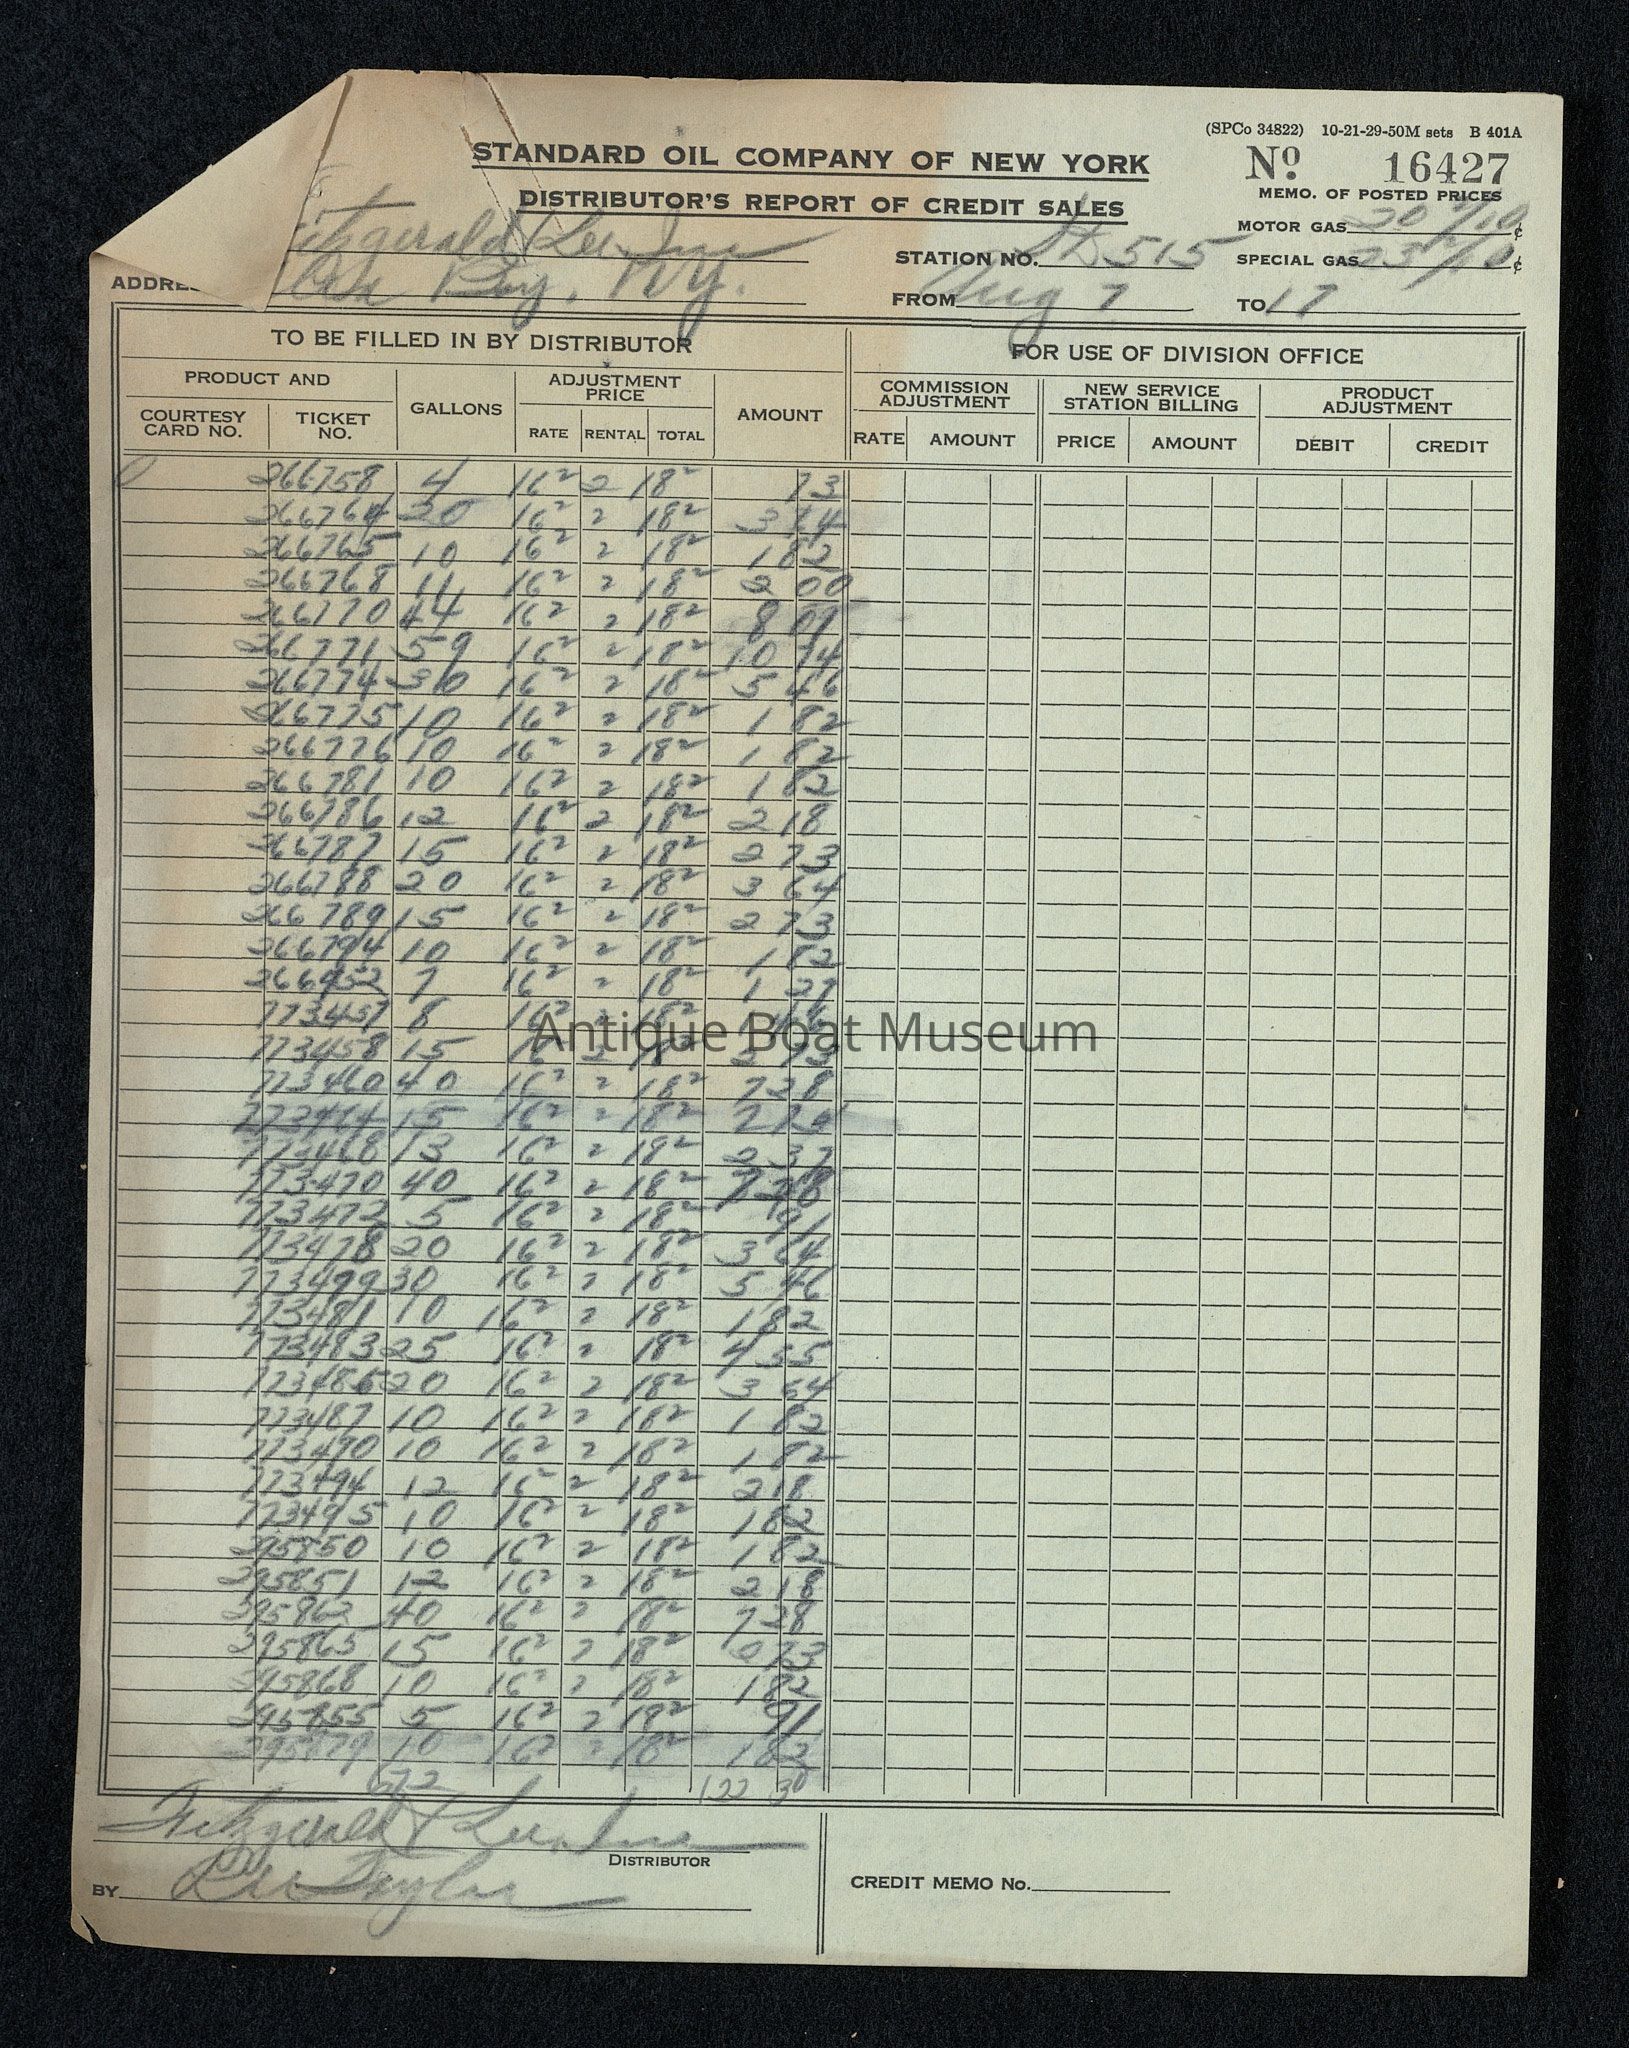 (SPCo 34822) 10-21-29-50M sets B 401A
STANDARD OIL COMPANY OF NEW YORK
No. 16427
DISTRIBUTOR'S REPORT OF CREDIT SALES
MEMO. OF POSTED PRICES
MOTOR GAS ¢
itzgerald & Lee. Inc
STATION NO. 515
SPECIAL GAS ¢
ADDRE Bay, N.Y.
FROM Aug 7 TO 17
TO BE FILLED IN BY DISTRIBUTOR FOR USE OF DIVISION OFFICE
PRODUCT AND GALLONS ADJUSTMENT PRICE AMOUNT COMMISSION ADJUSTMENT NEW SERVICE STATION BILLING PRODUCT ADJUSTMENT
COURTESY CARD NO. TICKET NO. RATE RENTAL TOTAL RATE AMOUNT PRICE AMOUNT DEBIT CREDIT
266758 4 16² 2 18² 73
266764 20 16² 2 18² 3 64
266765 10 16² 2 18² 1 82
266768 11 16² 2 18² 2 00
266770 44 16² 2 18² 8 01
266771 59 16² 2 18² 10 74
266774 30 16² 2 18² 5 46
266775 10 16² 2 18² 1 82
266776 10 16² 2 18² 1 82
266781 10 16² 2 18² 1 82
266786 12 16² 2 18² 2 18
266787 15 16² 2 18² 2 73
266788 20 16² 2 18² 3 64
266789 15 16² 2 18² 2 73
266794 10 16² 2 18² 1 82
266952 7 16² 2 18² 1 27
773457 8 16² 2 18²
Antique Boat Museum
773458 15 16² 2 18² 2 73
773460 40 16² 2 18² 7 28
15 16² 2 18²
773468 13 16² 2 18² 2 37
773470 40 16² 2 18² 7 28
773472 5 16² 2 18² 91
773478 20 16² 2 18² 3 64
773499 30 16² 2 18² 5 46
773481 10 16² 2 18² 1 82
773483 25 16² 2 18² 4 55
773486 20 16² 2 18² 3 64
773487 10 16² 2 18² 1 82
773490 10 16² 2 18² 1 82
773494 12 16² 2 18² 2 18
773495 10 16² 2 18² 1 82
295850 10 16² 2 18² 1 82
295851 12 16² 2 18² 2 18
295862 40 16² 2 18² 7 28
295865 15 16² 2 18² 2 73
295868 10 16² 2 18² 1 82
295855 5 16² 2 18² 91
295879 10 16² 2 18² 1 82
672 122 30
Fitzgerald & Lee, Inc
DISTRIBUTOR
BY Lee Taylor
CREDIT MEMO No.